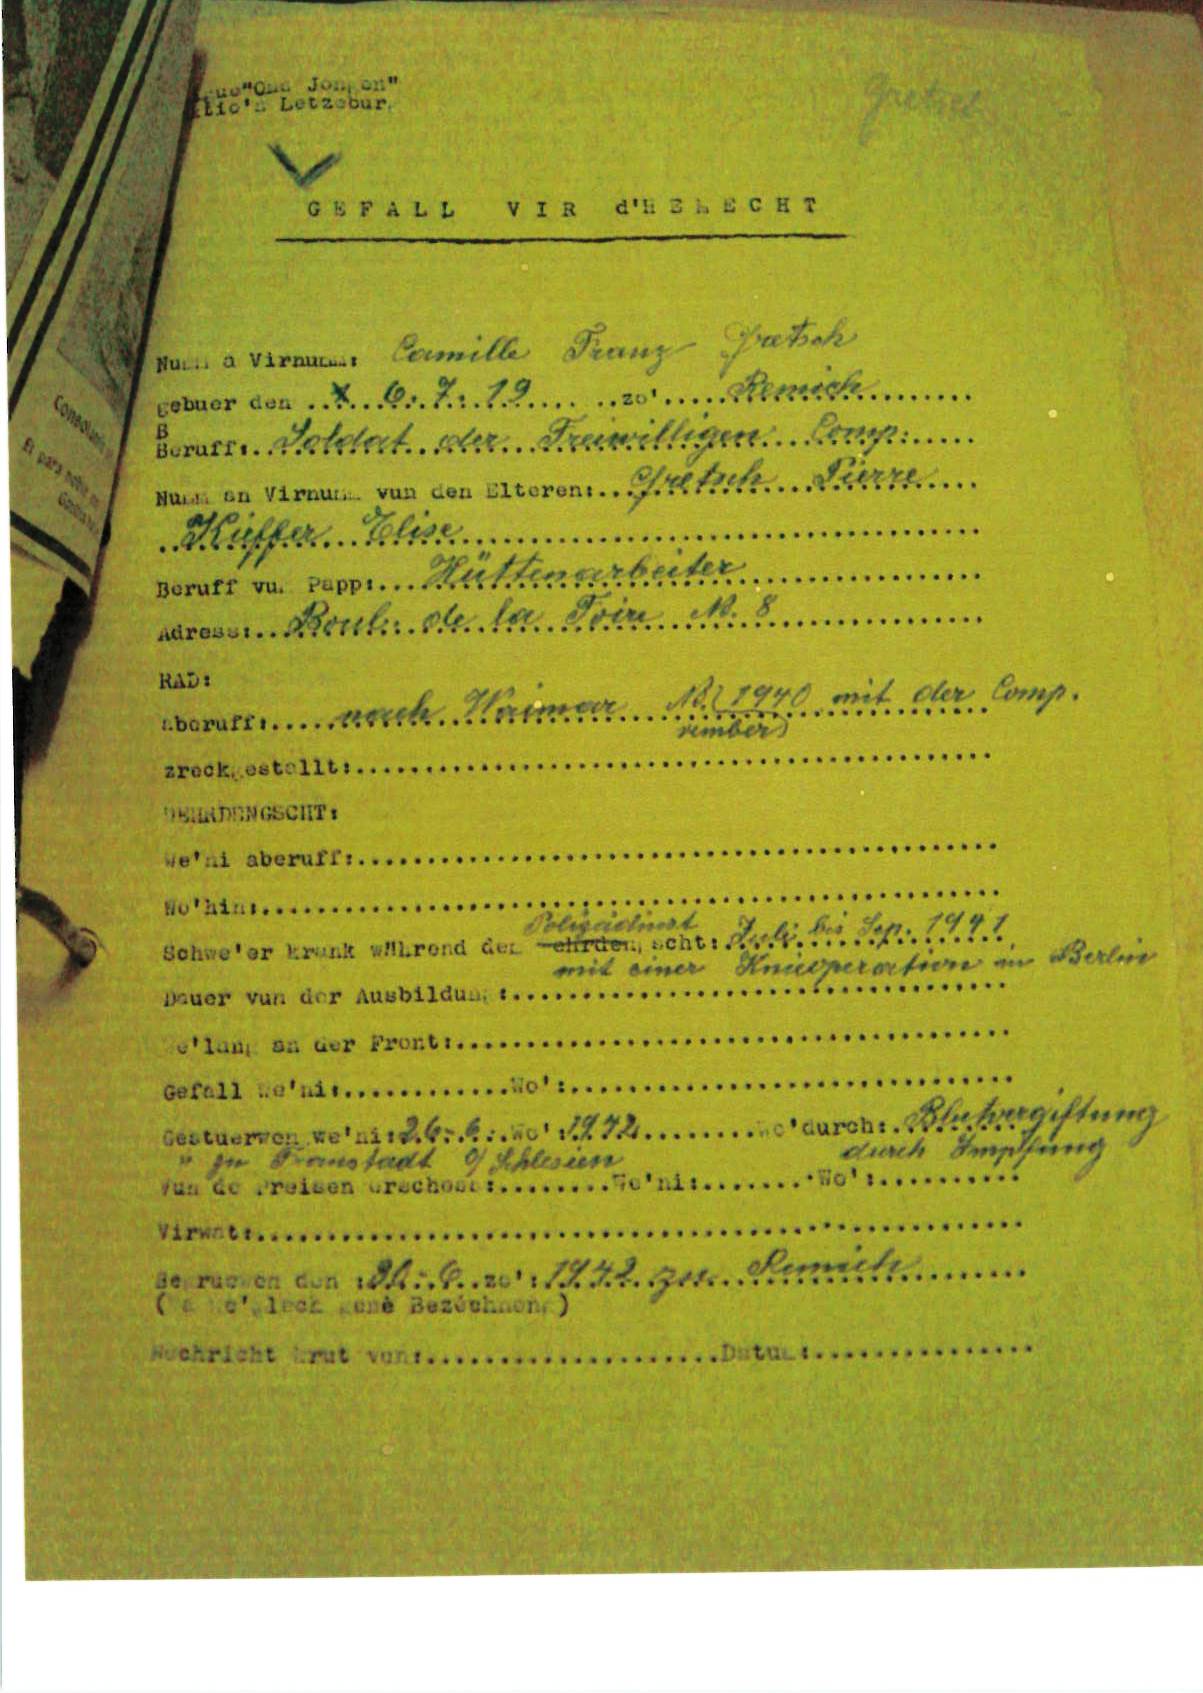 gue"Ons Jongen"
tio'n Letzebur.
Gretsch
GEFALL VIR d'HEMECHT
Numm a Virnumm: Camille Franz Gretsch
gebuer den ..6.7.19.... ..zo'.....Remich.........
B
Beruff:..Soldat der Freiwilligen Comp:.....
Numm an Virnumm vun den Elteren:..Gretsch...Pierre....
..Kieffer..Elise..............................
Beruff vum Papp:...Hüttenarbeiter...............
Adress:..Boul. de la Foire N. 8..............
RAD:
aberuff:.....nach Weimar No (1940 mit der Comp.
vember)
zreckgestallt:........................................
WEHRDENGSCHT:
We'ni aberuff:........................................
Wo'hin:........................................
Polizeidinst
Schwe'er krank während dem ehrdengscht: Juli bis Sep. 1941
mit einer Knieoperation in Berlin
Dauer vun der Ausbildung:..............................
We'lang an der Front:..............................
Gefall we'ni:............Wo':..............................
Gestuerwen we'ni:26.6..Wo':1942........wo'durch:.Blutvergiftung
" zu Fraustadt O/Schlesien durch Impfung
Vun de Preisen erschoss:........We'ni:.......Wo':..........
Virwat:........................................
Begruewen den :30.6..zo':1942 zu Remich.........
( Bezéchnong)
Nochricht krut vun:....................Datum:................
Consolantes
Et para nobis in